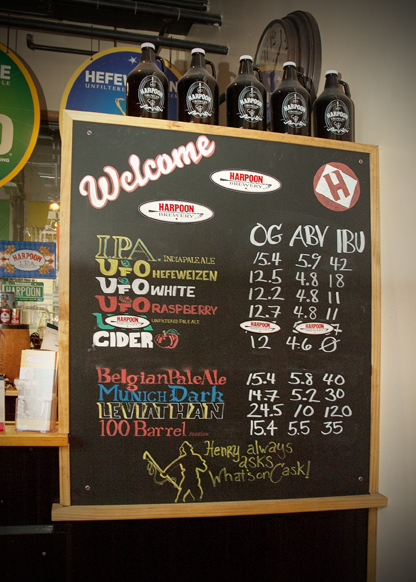 HEFEW
UNFILTERED
HARPOON HARPOON HARPOON HARPOON HARPOON
Welcome
HARPOON
BREWERY
H
HARPOON
BREWERY
OG ABV IBU
IPA INDIA PALE ALE 15.4 5.9 42
UFO HEFEWEIZEN 12.5 4.8 18
UFO WHITE 12.2 4.8 11
UFO RASPBERRY 12.7 4.8 11
U UNFILTERED PALE ALE 7
HARPOON HARPOON HARPOON
CIDER 12 4.6 Ø
Belgian Pale Ale 15.4 5.8 40
Munich Dark 14.7 5.2 30
LEVIATHAN 24.5 10 120
100 Barrel 15.4 5.5 35
Henry always
asks
What's on Cask!
HARPOON
HARPOON